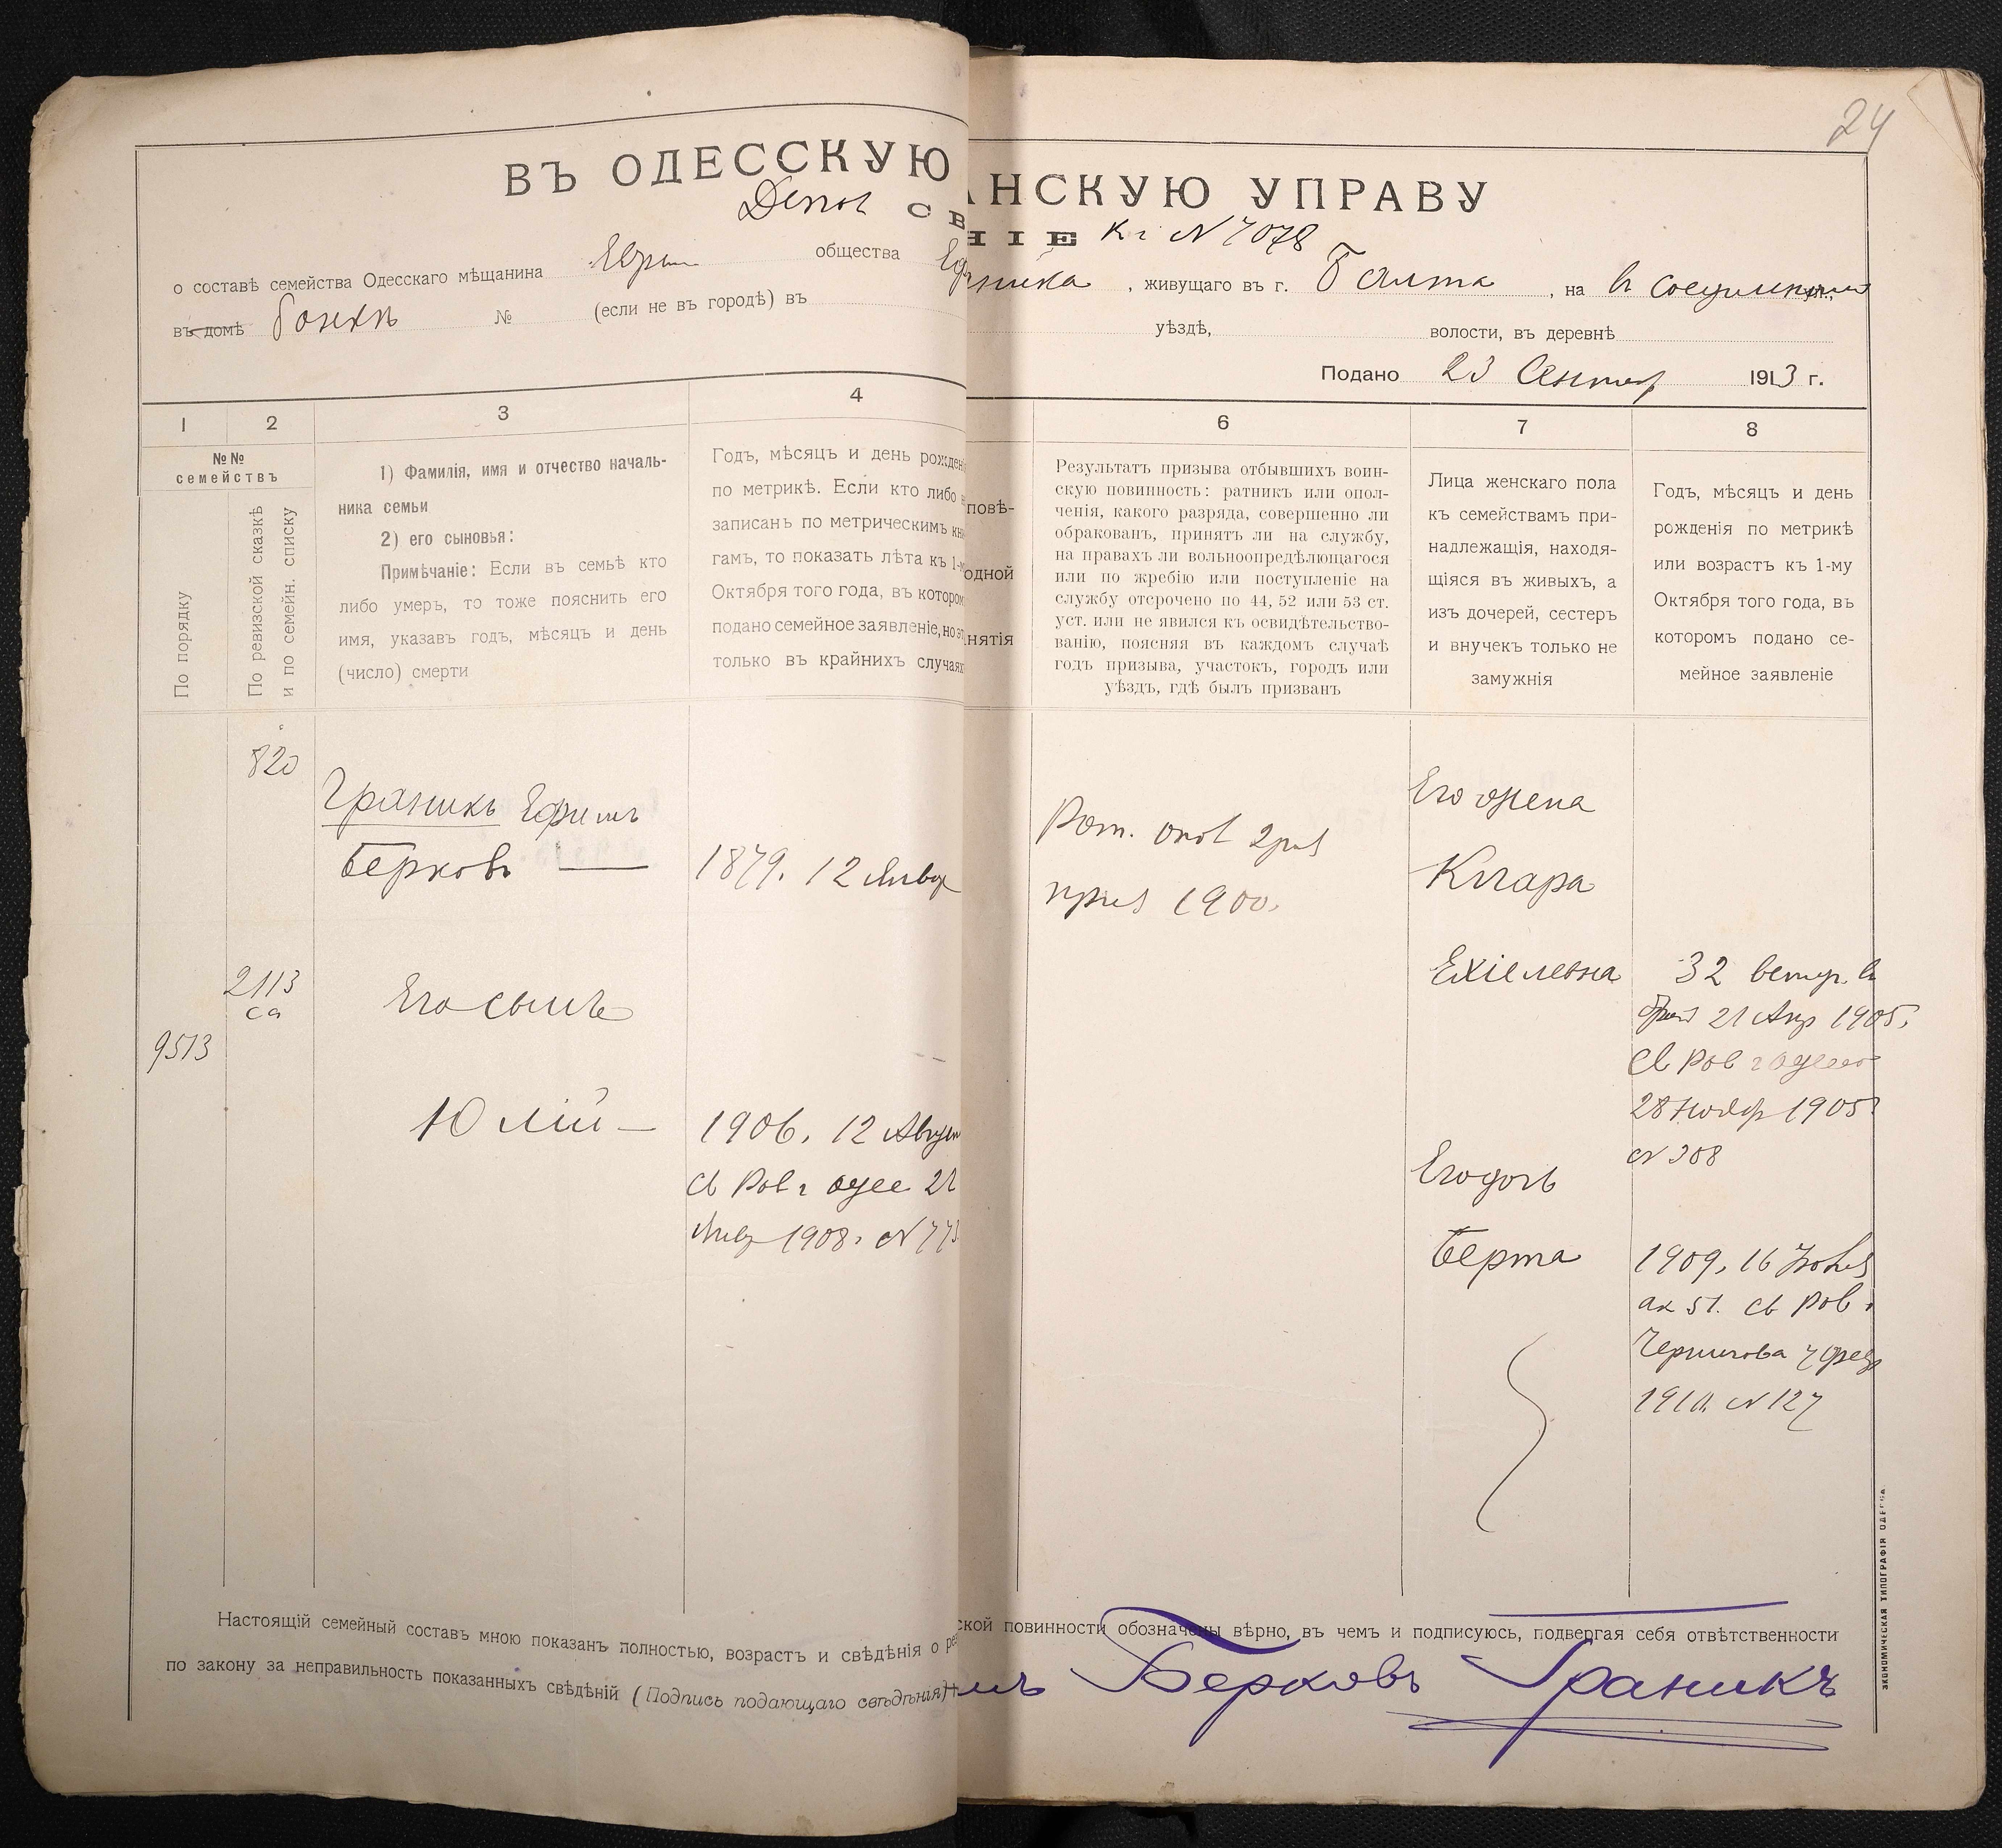 24
ВЪ ОДЕССКУЮ АНСКУЮ УПРАВУ
СВ НІЕ к № 7078
о составѣ семейства Одесскаго мѣщанина Евр общества Е ника, живущаго въ г. Балта, на
въ домѣ № (если не въ городѣ) въ уѣздѣ, волости, въ деревнѣ
Подано 23 Сентяб 1913 г.
1 2 3 4 6 7 8
№№ семействъ
По порядку
По ревизской сказкѣ
и по семейн. списку
1) Фамилія, имя и отчество началь-
ника семьи
2) его сыновья:
Примѣчаніе: Если въ семьѣ кто
либо умеръ, то тоже пояснить его
имя, указавъ годъ, мѣсяцъ и день
(число) смерти
Годъ, мѣсяцъ и день рожден
по метрикѣ. Если кто либо
записанъ по метрическимъ кни
гамъ, то показать лѣта къ 1-м
Октября того года, въ котором
подано семейное заявленіе, но эт
только въ крайнихъ случаях
повѣ-
одной
нятія
Результатъ призыва отбывшихъ воин-
скую повинность: ратникъ или опол-
ченія, какого разряда, совершенно ли
обракованъ, принятъ ли на службу,
на правахъ ли вольноопредѣлющагося
или по жребію или поступленіе на
службу отсрочено по 44, 52 или 53 ст.
уст. или не явился къ освидѣтельство-
ванію, поясняя въ каждомъ случаѣ
годъ призыва, участокъ, городъ или
уѣздъ, гдѣ былъ призванъ
Лица женскаго пола
къ семействамъ при-
надлежащія, находя-
щіяся въ живыхъ, а
изъ дочерей, сестеръ
и внучекъ только не
замужнія
Годъ, мѣсяцъ и день
рожденія по метрикѣ
или возрастъ къ 1-му
Октября того года, въ
которомъ подано се-
мейное заявленіе
820
Граникъ Ефимъ
Берковъ
1879. 12 Январ
2113
са
9513
Его сынъ
Юлій
1906. 12 Август
св Рав г Одес 21
Янв 1908. № 773
Рат. опол 2 раз
приз 1900.
Его жена
Клара
Ехіелевна
32 вступ. въ
брак 21 Апр 1905.
св Рав г Одессы
28 Ноябр 1905
№ 308
Его дочь
Берта
1909, 16 Іюня
ак 51. св Рав.
Чернигова 7 февр
1910. № 127
Настоящій семейный составъ мною показанъ полностью, возрастъ и свѣдѣнія о ре ской повинности обозначены вѣрно, въ чемъ и подписуюсь, подвергая себя отвѣтственности
по закону за неправильность показанныхъ свѣдѣній (Подпись подающаго свѣдѣнія) имъ Берковъ Граникъ
ЭКОНОМИЧЕСКАЯ ТИПОГРАФІЯ ОДЕССА